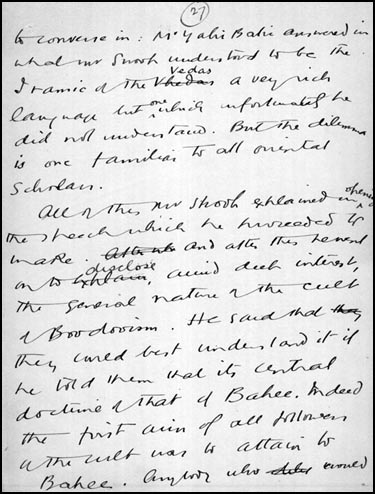 27
to converse in: Mr Yahi Bahi answered in
what Mr Snoop understood to be the
Iramic of the Vhedas Vedas a very rich
language but one which unfortunately he
did not understand. But the dilemma
is one familiar to all oriental
scholars.
All of this Mr Snoop explained in opening
the speech which he proceeded to
make. And after this he went
on to explain, disclose, amid deep interest,
the general nature of the cult
of Boodooism. He said that they
they could best understand it if
he told them that its central
doctrine of that of Bahee. Indeed
the first aim of all followers
of the cult was to attain to
Bahee. Anybody who could